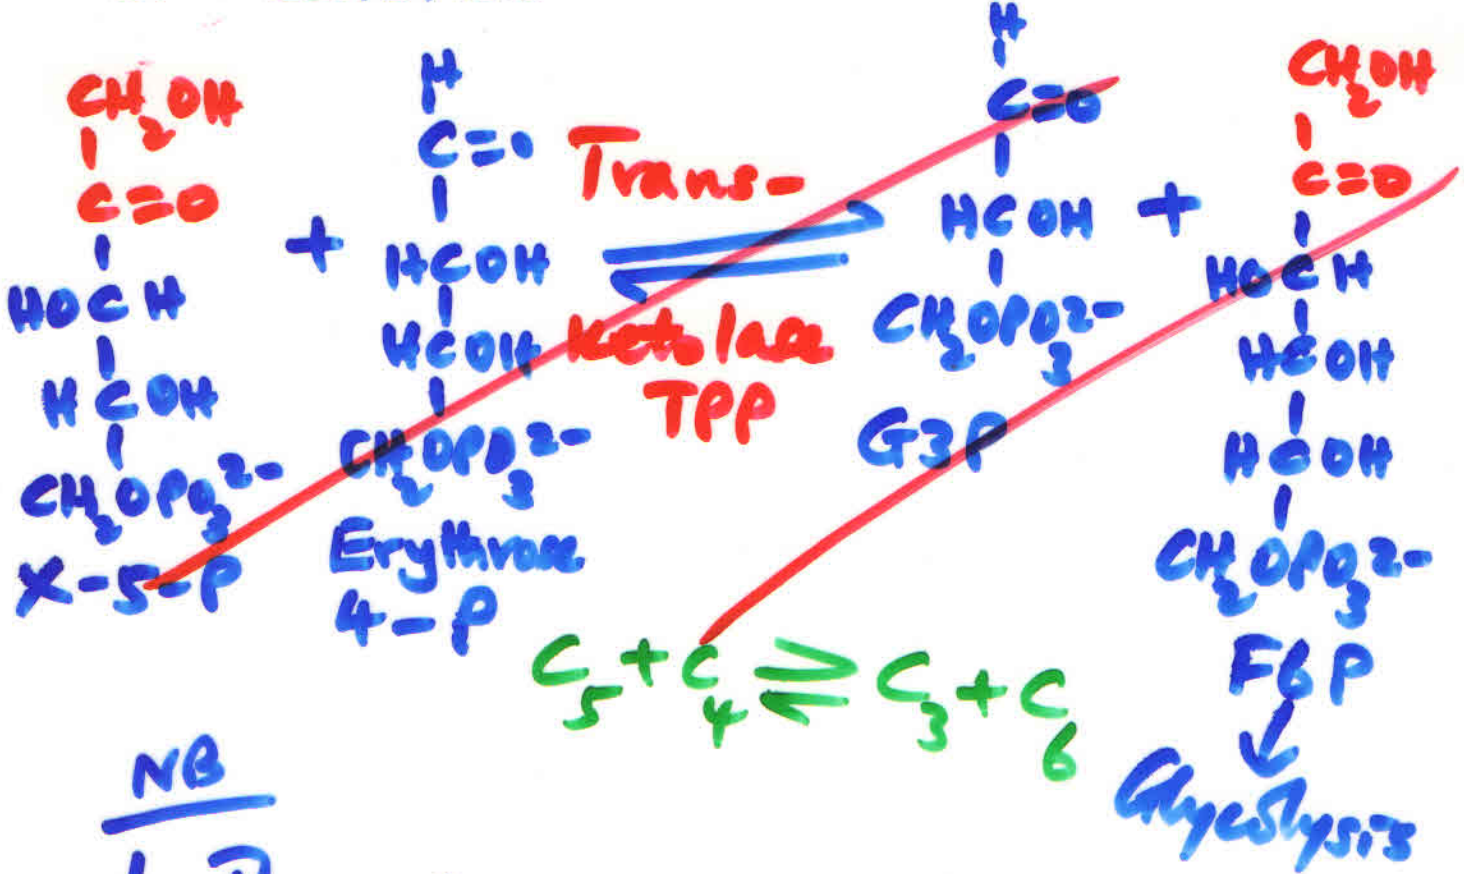 CH2OH
C=O
HOCH
HCOH
CH2OPO3 2-
X-5-P
+
H
C=O
HCOH
HCOH
CH2OPO3 2-
Erythrose
4-P
Trans-
⇌
Ketolase
TPP
H
C=O
HCOH
CH2OPO3 2-
G3P
+
CH2OH
C=O
HOCH
HCOH
HCOH
CH2OPO3 2-
F6P
↓
Glycolysis
C5+C4 ⇌ C3+C6
NB